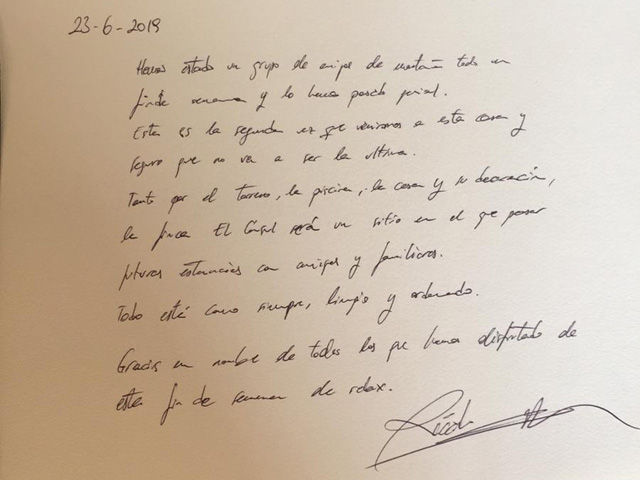 23-6-2019
Hemos estado un grupo de amigos de montaña todo un
fin de semana y lo hemos pasado genial.
Esta es la segunda vez que venimos a esta casa y
seguro que no va a ser la ultima.
Tanto por el terreno, la piscina, la casa y su decoración,
la finca El Cónsul será un sitio en el que pasar
futuras estancias con amigos y familiares.
Todo está como siempre, limpio y ordenado.
Gracias en nombre de todos los que hemos disfrutado de
este fin de semana de relax.